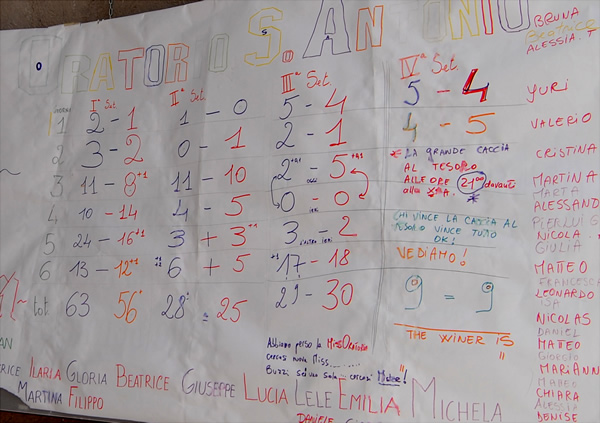 ORATORIO S. ANTONIO
BRUNA
BEATRICE
ALESSIA. T
YURI
VALERIO
CRISTINA
MARTINA
MARTA
ALESSAND
PIERLUIG
NICOLA
GIULIA
MATTEO
FRANCESCA
LEONARDO
NICOLAS
DANIEL
MATTEO
GIORGIO
MARIANN
MATTEO
CHIARA
ALESSIA
DENISE
Iª Set. IIª Set. IIIª Set. IVª Set.
1 2 - 1 1 - 0 5 - 4 5 - 4
2 3 - 2 0 - 1 2 - 1 4 - 5
3 11 - 8 +1 11 - 10 2 +1 - 5 +1
4 10 - 14 4 - 5 0 - 0
5 24 - 16 +1 3 + 3 +1 3 - 2
6 13 - 12 +1 6 + 5 +1 17 - 18
tot. 63 56 28 = 25 29 - 30
* LA GRANDE CACCIA
AL TESORO
ALLE ORE 21:00 davanti
alla
CHI VINCE LA CACCIA AL
TESORO VINCE TUTTO
OK!
VEDIAMO!
9 = 9
THE WINER IS
"
Abbiamo perso la
cercasi nuova Miss.......
Buzzi sei una sola - cercasi !
AN
RICE ILARIA GLORIA BEATRICE GIUSEPPE LUCIA LELE EMILIA MICHELA
MARTINA FILIPPO
DANIELE